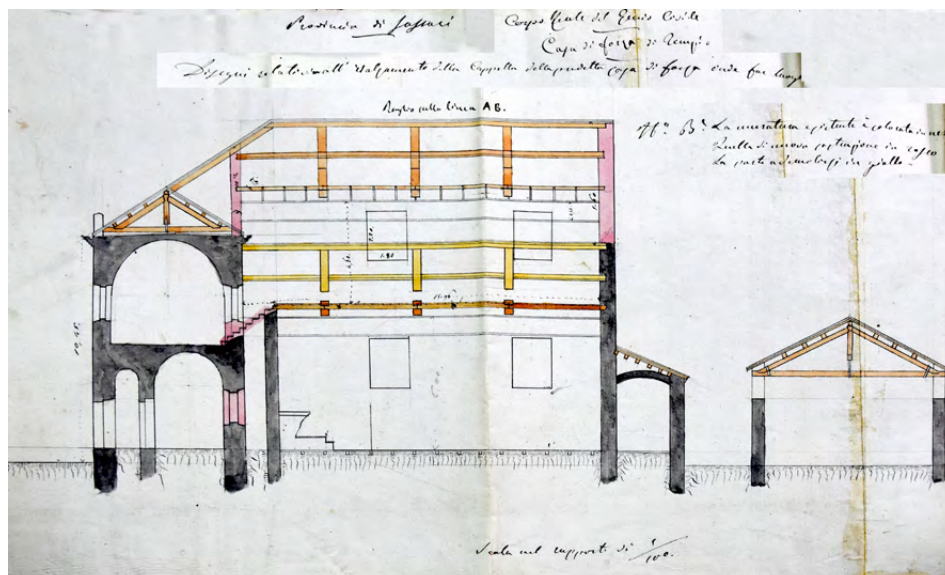 Provincia di Sassari
Corpo Reale del Genio Civile
Casa di forza di Tempio
Disegni relativi all' Rialzamento della Cappella della predetta casa di forza onde far luogo
Taglio sulla linea AB.
N.ª B.ª La muratura esistente è colorata in
Quella di nuova costruzione in rosso
La parte a demolirsi in giallo.
1.80
Scala nel rapporto di 1/100.